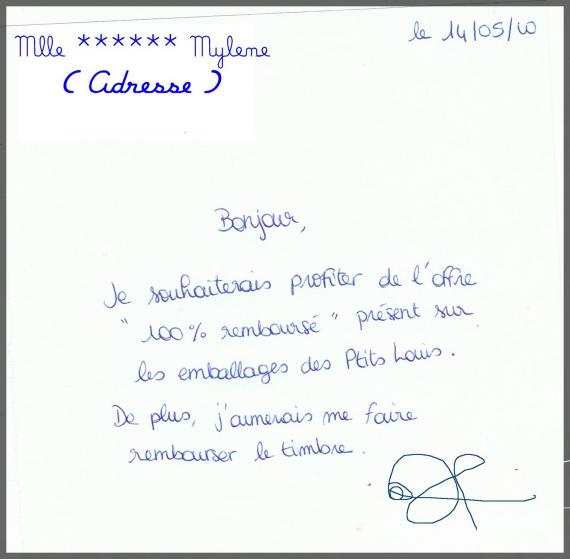 Mlle ****** Mylène
le 14/05/10
(Adresse)
Bonjour,
Je souhaiterais profiter de l'offre
" 100% remboursé " présent sur
les emballages des Ptits Louis.
De plus, j'aimerais me faire
rembourser le timbre.